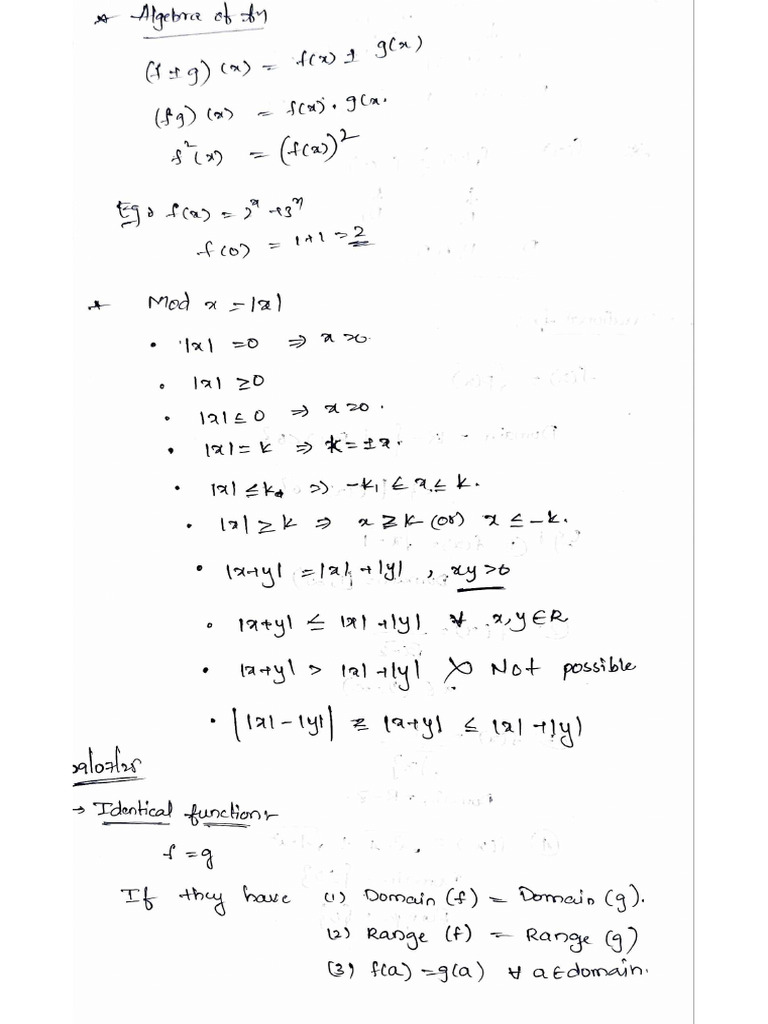 * Algebra of fn
(f ± g) (x) = f(x) ± g(x)
(fg) (x) = f(x) . g(x.
f²(x) = (f(x))²
Eg: f(x) = 2ˣ + 3ˣ
f(0) = 1+1 = 2
* Mod x = |x|
• |x| = 0 ⇒ x = 0.
• |x| ≥ 0
• |x| ≤ 0 ⇒ x = 0.
• |x| = k ⇒ k = ± x.
• |x| ≤ k ⇒ -k ≤ x ≤ k.
• |x| ≥ k ⇒ x ≥ k (or) x ≤ -k.
• |x+y| = |x| + |y| , xy > 0
• |x+y| ≤ |x| + |y| ∀ x, y ∈ R
• |x+y| > |x| + |y| X Not possible
• ||x| - |y|| ≤ |x+y| ≤ |x| + |y|
→ Identical functions
f = g
If they have (1) Domain (f) = Domain (g).
(2) Range (f) = Range (g)
(3) f(a) = g(a) ∀ a ∈ domain.